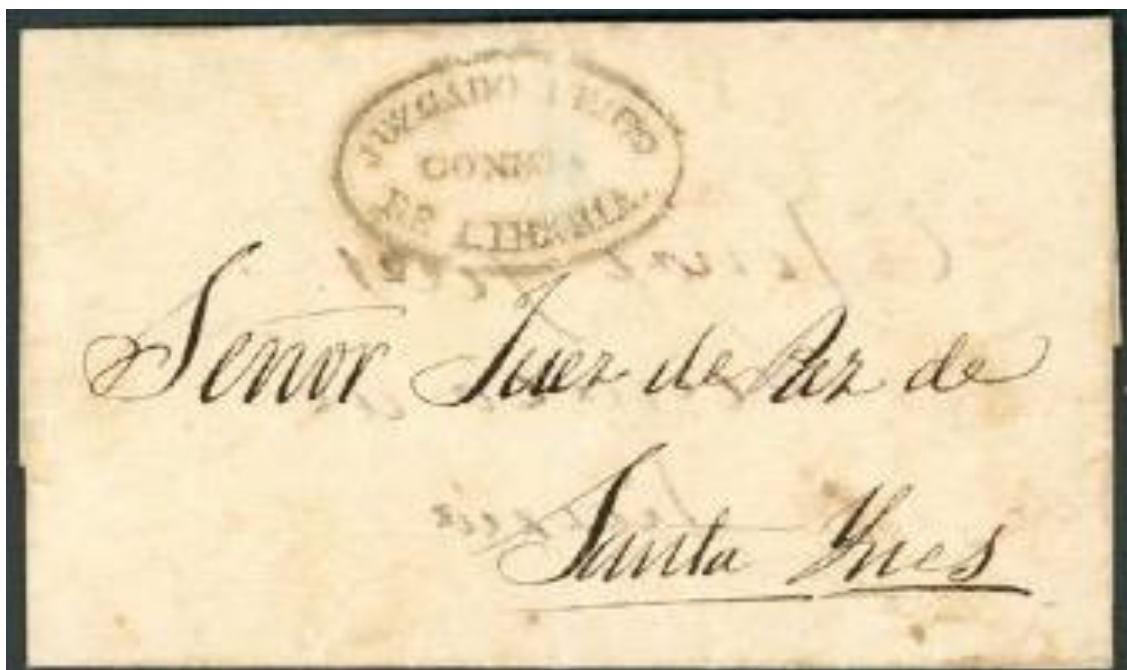 JUZGADO
DE LIBERIA.
Señor Juez de Paz de
Santa Ynes